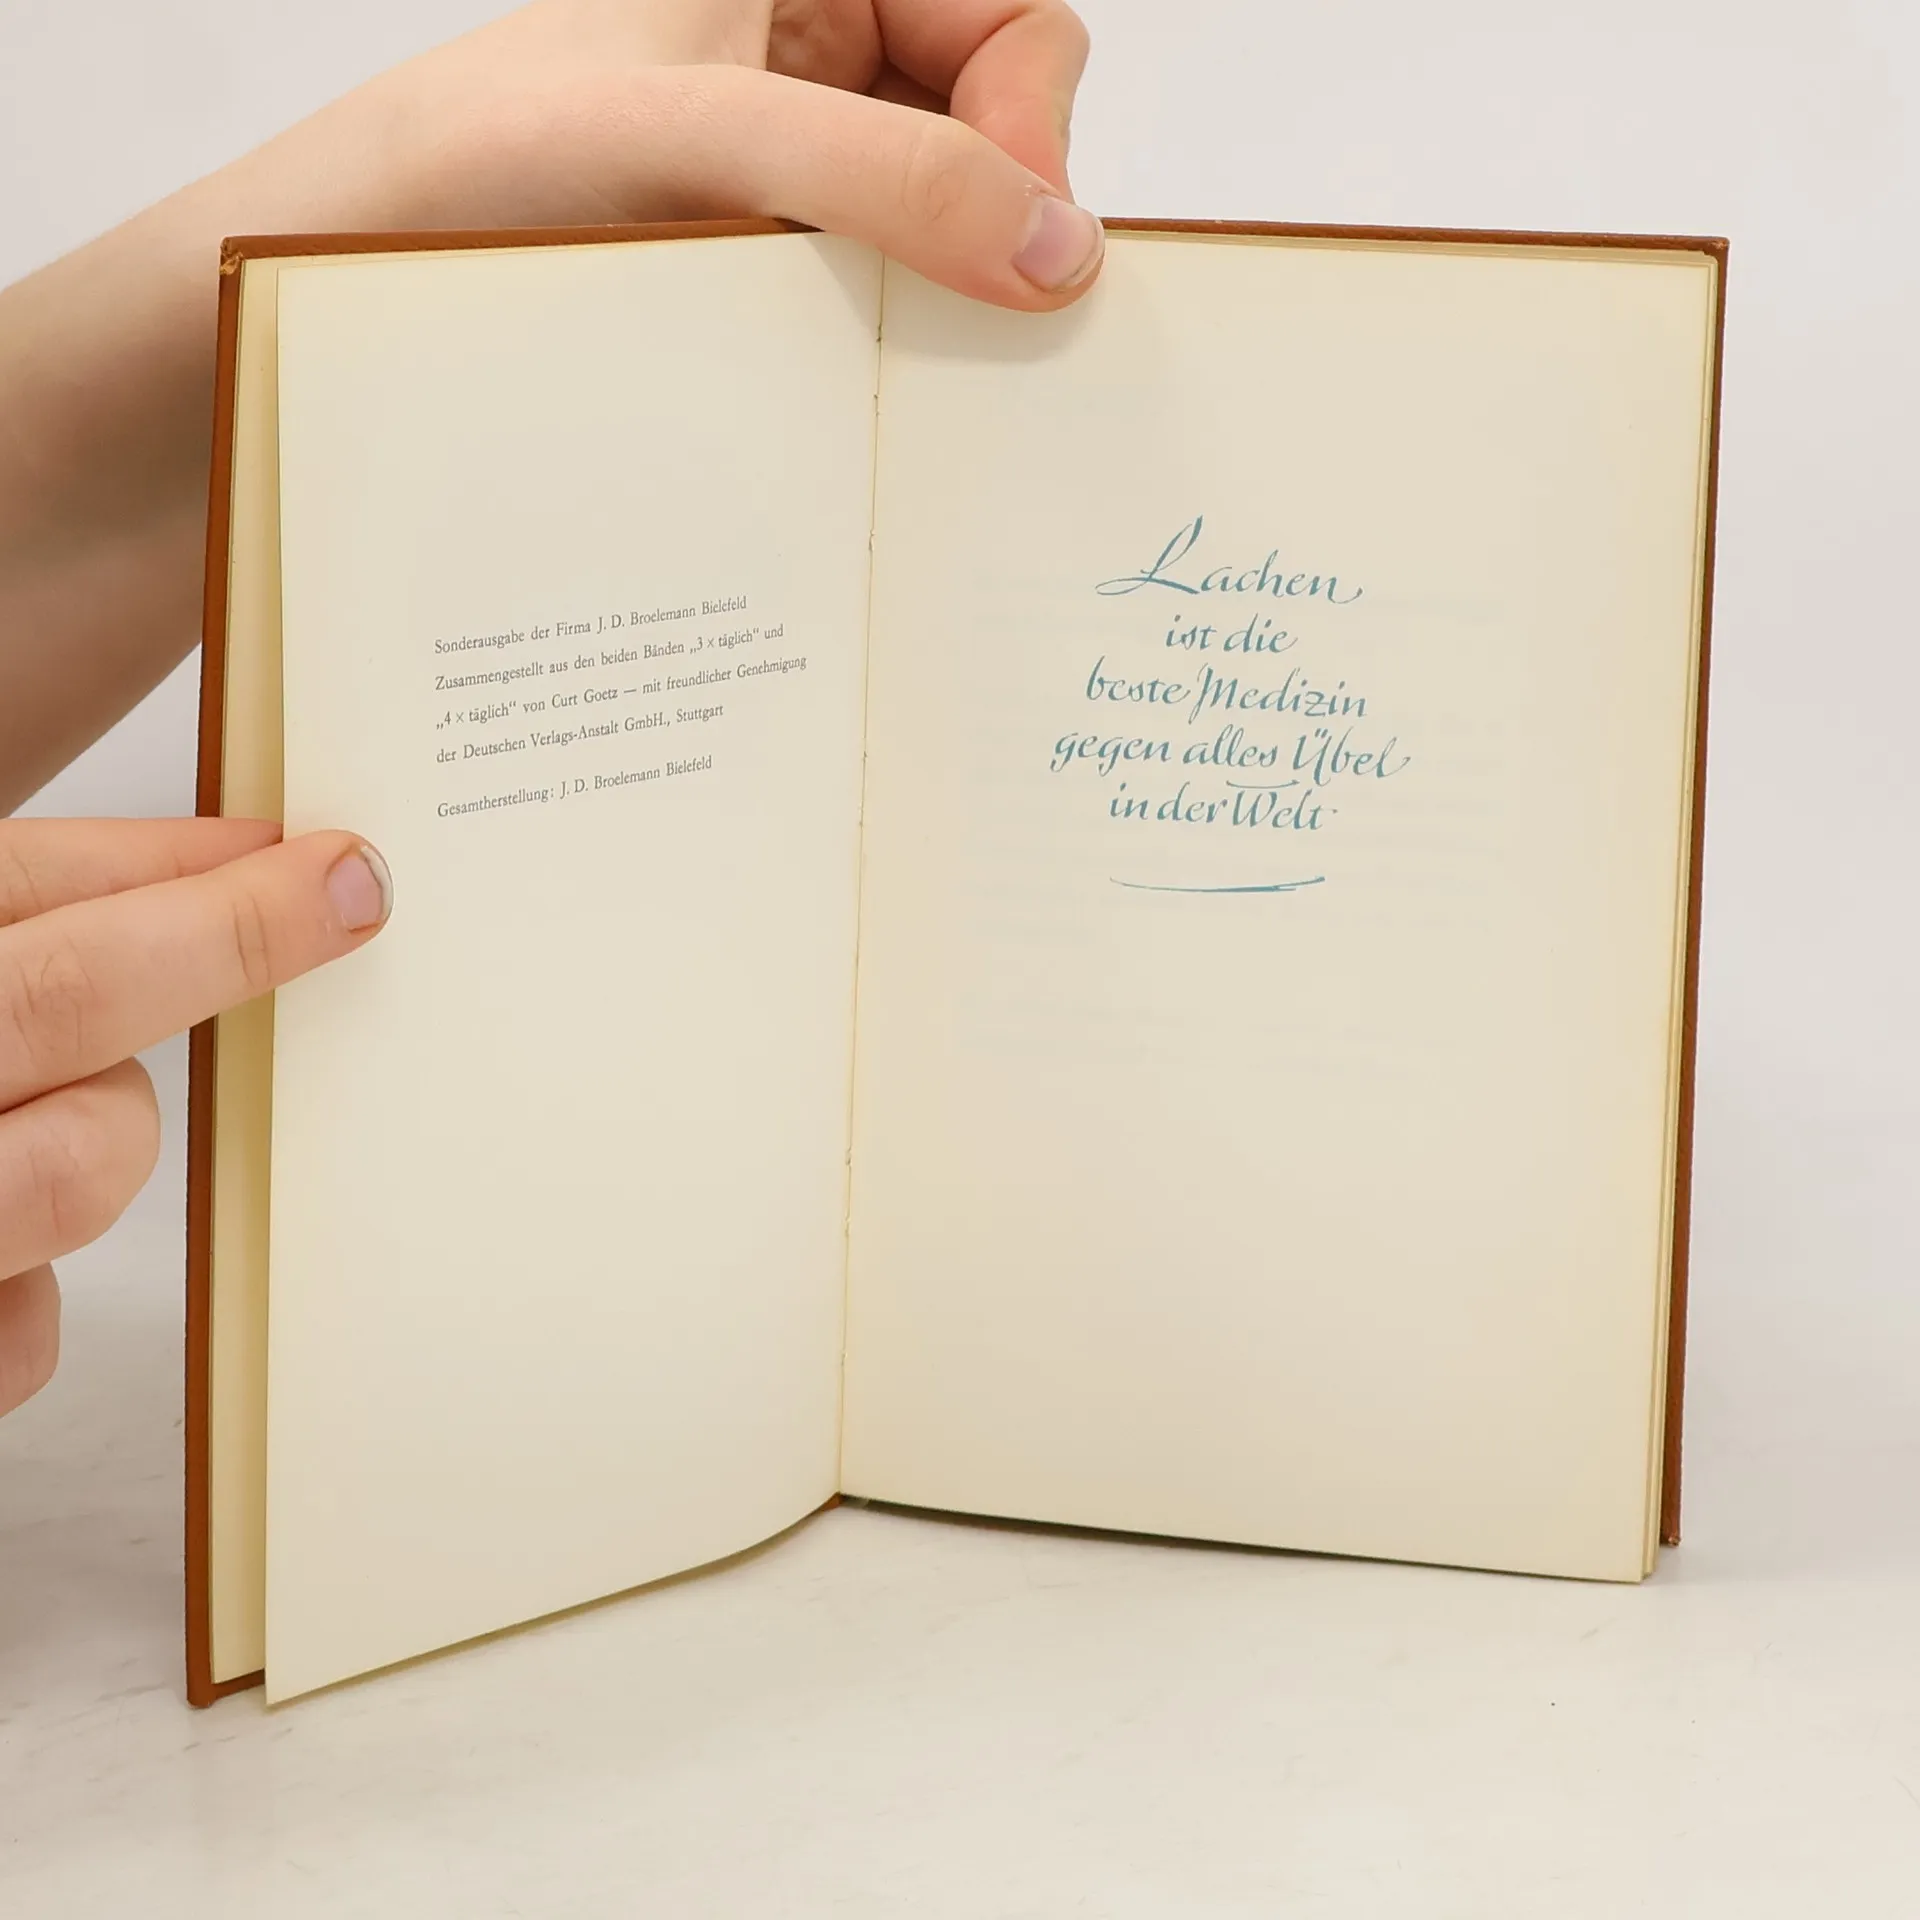 Sonderausgabe der Firma J. D. Broelemann Bielefeld
Zusammengestellt aus den beiden Bänden „3 × täglich“ und
„4 × täglich“ von Curt Goetz — mit freundlicher Genehmigung
der Deutschen Verlags-Anstalt GmbH., Stuttgart
Gesamtherstellung: J. D. Broelemann Bielefeld
Lachen
ist die
beste Medizin
gegen alles Übel
in der Welt